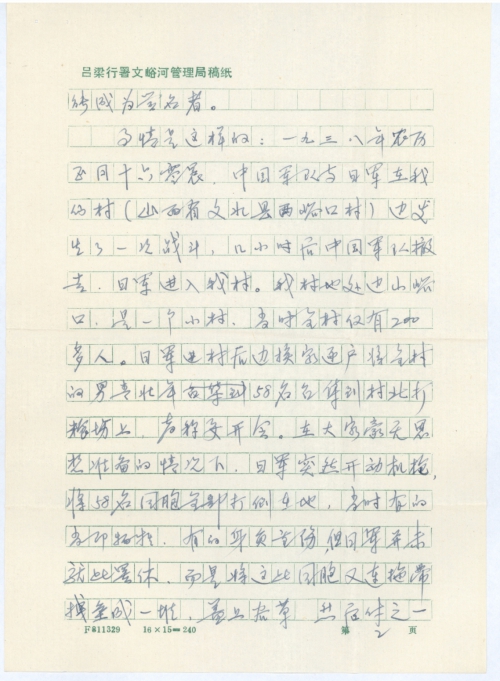 吕梁行署文峪河管理局稿纸
能成为签名者。
事情是这样的：一九三八年农历
正月十六凌晨，中国军队与日军在我
们村（山西省文水县西峪口村）边发
生了一次战斗，几小时后中国军队撤
走，日军进入我村。我村地处边山峪
口，是一个小村，当时全村仅有200
多人。日军进村后边挨家逐户将全村
的男青壮年 58名召集到村北打
粮场上，声称要开会。在大家毫无思
想准备的情况下，日军突然开动机枪，
将58名同胞全部打倒在地，当时有的
当即牺牲，有的身负重伤，但日军并未
就此罢休，而是将这些同胞又连拖带
拽垒成一堆，盖上谷草，然后付之一
F811329 16×15=240 第 2 页